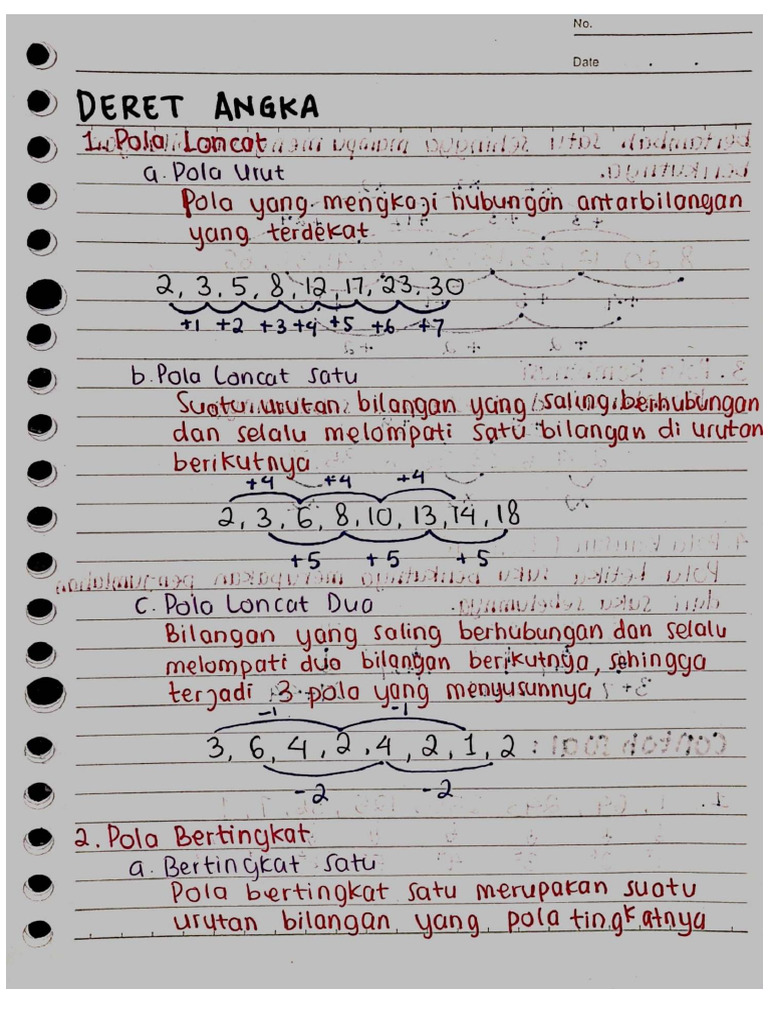 No.
Date
DERET ANGKA
1. Pola Loncat
a. Pola Urut
Pola yang mengkaji hubungan antarbilangan
yang terdekat
2, 3, 5, 8, 12, 17, 23, 30
+1 +2 +3 +4 +5 +6 +7
b. Pola Loncat Satu
Suatu urutan bilangan yang saling berhubungan
dan selalu melompati satu bilangan di urutan
berikutnya
+4 +4 +4
2, 3, 6, 8, 10, 13, 14, 18
+5 +5 +5
c. Pola Loncat Dua
Bilangan yang saling berhubungan dan selalu
melompati dua bilangan berikutnya, sehingga
terjadi 3 pola yang menyusunnya
-1 -1
3, 6, 4, 2, 4, 2, 1, 2
-2 -2
2. Pola Bertingkat
a. Bertingkat Satu
Pola bertingkat satu merupakan suatu
urutan bilangan yang pola tingkatnya